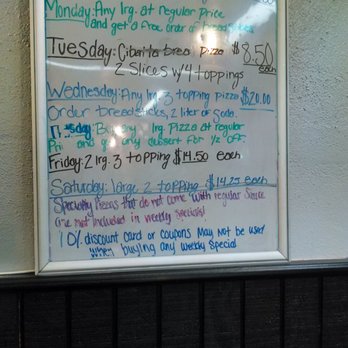 Monday: Any lrg. at regular Price
and get a free order of breadsticks
Tuesday: Cibatta bread pizza $8.50
2 Slices w/4 toppings each
Wednesday: Any lrg 3 topping pizza $20.00
Order breadsticks, 2 liter of soda.
Buy any lrg. Pizza at regular
and get any dessert for 1/2 off.
Friday: 2 lrg. 3 topping $14.50 each
Saturday: large 2 topping $14.25 each
Specialty Pizzas that do not come with regular Sauce
are not included in weekly specials!
10% discount card or coupons may not be used
when buying any weekly special